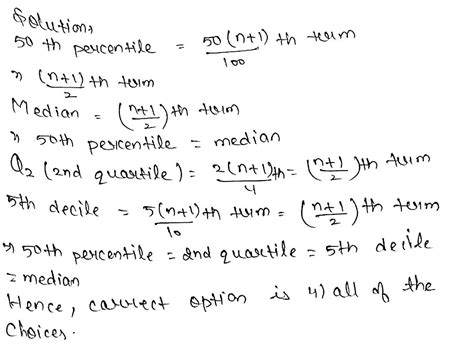 Solution,
50 th percentile = 50(n+1)/100 th term
» (n+1)/2 th term
Median = (n+1/2) th term
» 50th percentile = median
Q2 (2nd quartile) = 2(n+1)/4 th = (n+1/2) th term
5th decile = 5(n+1)/10 th term = (n+1/2) th term
» 50th percentile = 2nd quartile = 5th decile
= median
Hence, correct option is 4) all of the
choices.